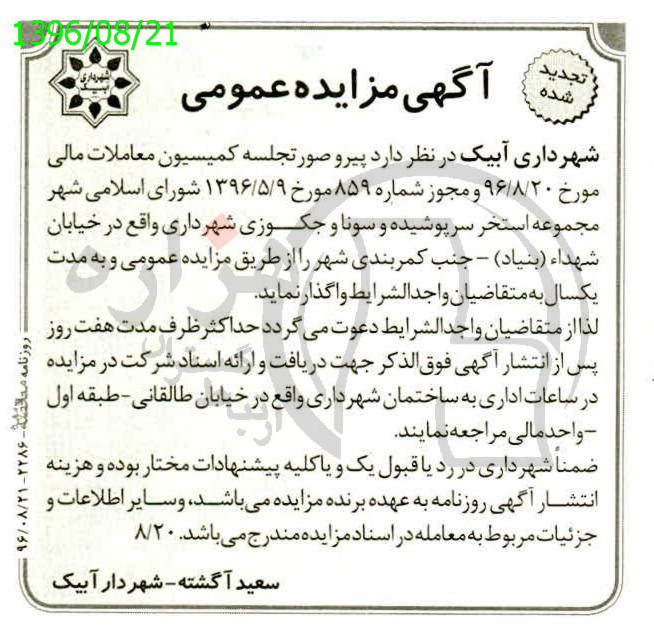 1396/08/21
شهرداری
آبیک
آگهی مزایده عمومی
تجدید
شده
شهرداری آبیک در نظر دارد پیرو صورتجلسه کمیسیون معاملات مالی
مورخ ۹۶/۸/۲۰ و مجوز شماره ۸۵۹ مورخ ۱۳۹۶/۵/۹ شورای اسلامی شهر
مجموعه استخر سرپوشیده و سونا و جکوزی شهرداری واقع در خیابان
شهداء (بنیاد) – جنب کمربندی شهر را از طریق مزایده عمومی و به مدت
یکسال به متقاضیان واجدالشرایط واگذار نماید.
لذا از متقاضیان واجدالشرایط دعوت می گردد حداکثر ظرف مدت هفت روز
پس از انتشار آگهی فوق الذکر جهت دریافت و ارائه اسناد شرکت در مزایده
در ساعات اداری به ساختمان شهرداری واقع در خیابان طالقانی- طبقه اول
–واحد مالی مراجعه نمایند.
ضمناً شهرداری در رد یا قبول یک و یا کلیه پیشنهادات مختار بوده و هزینه
انتشار آگهی روزنامه به عهده برنده مزایده می باشد، وسایر اطلاعات و
جزئیات مربوط به معامله در اسناد مزایده مندرج می باشد. ۸/۲۰
سعید آگشته – شهردار آبیک
روزنامه
۹۶/۰۸/۲۱-۲۲۸۶
هزاره